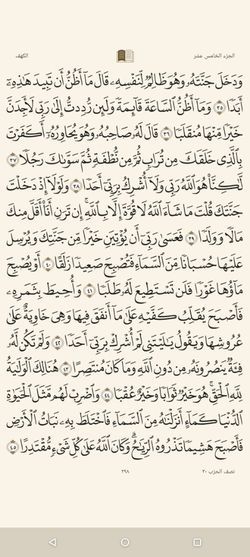 الجزء الخامس عشر
الكهف
وَدَخَلَ جَنَّتَهُۥ وَهُوَ ظَالِمٌ لِّنَفْسِهِۦ قَالَ مَآ أَظُنُّ أَن تَبِيدَ هَٰذِهِۦٓ
أَبَدًا ٣٥ وَمَآ أَظُنُّ ٱلسَّاعَةَ قَآئِمَةً وَلَئِن رُّدِدتُّ إِلَىٰ رَبِّي لَأَجِدَنَّ
خَيْرًا مِّنْهَا مُنقَلَبًا ٣٦ قَالَ لَهُۥ صَاحِبُهُۥ وَهُوَ يُحَاوِرُهُۥٓ أَكَفَرْتَ
بِٱلَّذِي خَلَقَكَ مِن تُرَابٍ ثُمَّ مِن نُّطْفَةٍ ثُمَّ سَوَّىٰكَ رَجُلًا ٣٧
لَّٰكِنَّا۠ هُوَ ٱللَّهُ رَبِّي وَلَآ أُشْرِكُ بِرَبِّيٓ أَحَدًا ٣٨ وَلَوْلَآ إِذْ دَخَلْتَ
جَنَّتَكَ قُلْتَ مَا شَآءَ ٱللَّهُ لَا قُوَّةَ إِلَّا بِٱللَّهِۚ إِن تَرَنِ أَنَا۠ أَقَلَّ مِنكَ
مَالًا وَوَلَدًا ٣٩ فَعَسَىٰ رَبِّيٓ أَن يُؤْتِيَنِ خَيْرًا مِّن جَنَّتِكَ وَيُرْسِلَ
عَلَيْهَا حُسْبَانًا مِّنَ ٱلسَّمَآءِ فَتُصْبِحَ صَعِيدًا زَلَقًا ٤٠ أَوْ يُصْبِحَ
مَآؤُهَا غَوْرًا فَلَن تَسْتَطِيعَ لَهُۥ طَلَبًا ٤١ وَأُحِيطَ بِثَمَرِهِۦ
فَأَصْبَحَ يُقَلِّبُ كَفَّيْهِ عَلَىٰ مَآ أَنفَقَ فِيهَا وَهِيَ خَاوِيَةٌ عَلَىٰ
عُرُوشِهَا وَيَقُولُ يَٰلَيْتَنِي لَمْ أُشْرِكْ بِرَبِّيٓ أَحَدًا ٤٢ وَلَمْ تَكُن لَّهُۥ
فِئَةٌ يَنصُرُونَهُۥ مِن دُونِ ٱللَّهِ وَمَا كَانَ مُنتَصِرًا ٤٣ هُنَالِكَ ٱلْوَلَٰيَةُ
لِلَّهِ ٱلْحَقِّۚ هُوَ خَيْرٌ ثَوَابًا وَخَيْرٌ عُقْبًا ٤٤ وَٱضْرِبْ لَهُم مَّثَلَ ٱلْحَيَوٰةِ
ٱلدُّنْيَا كَمَآءٍ أَنزَلْنَٰهُ مِنَ ٱلسَّمَآءِ فَٱخْتَلَطَ بِهِۦ نَبَاتُ ٱلْأَرْضِ
فَأَصْبَحَ هَشِيمًا تَذْرُوهُ ٱلرِّيَٰحُۗ وَكَانَ ٱللَّهُ عَلَىٰ كُلِّ شَيْءٍ مُّقْتَدِرًا ٤٥
نصف الحزب ٣٠
٢٩٨